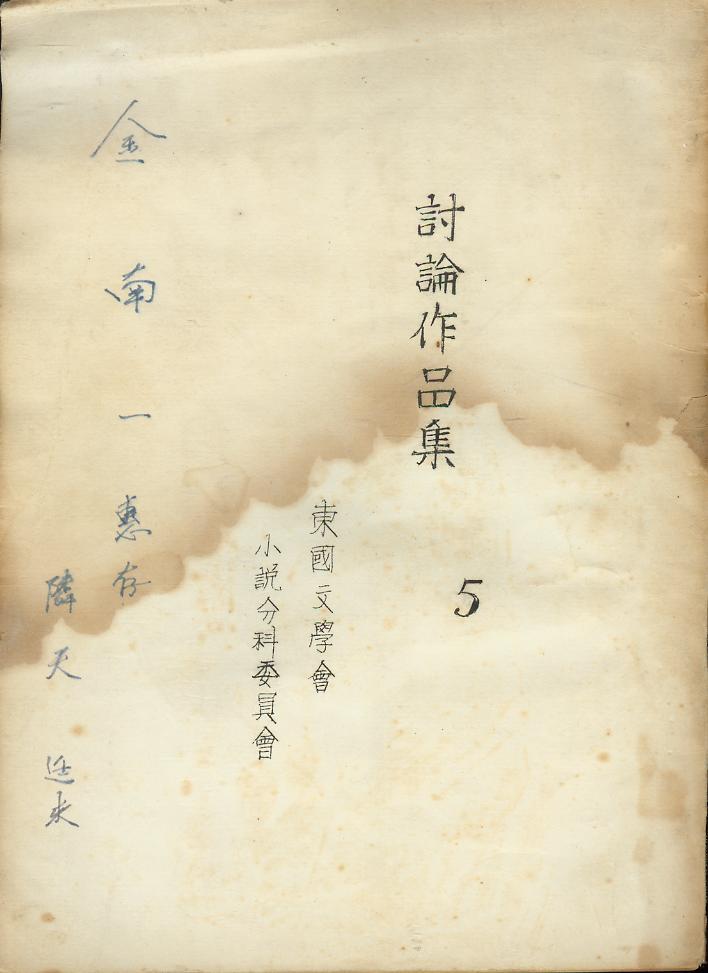 討論作品集
5
東國文學會
小説分科委員會
金南一惠存
隣天